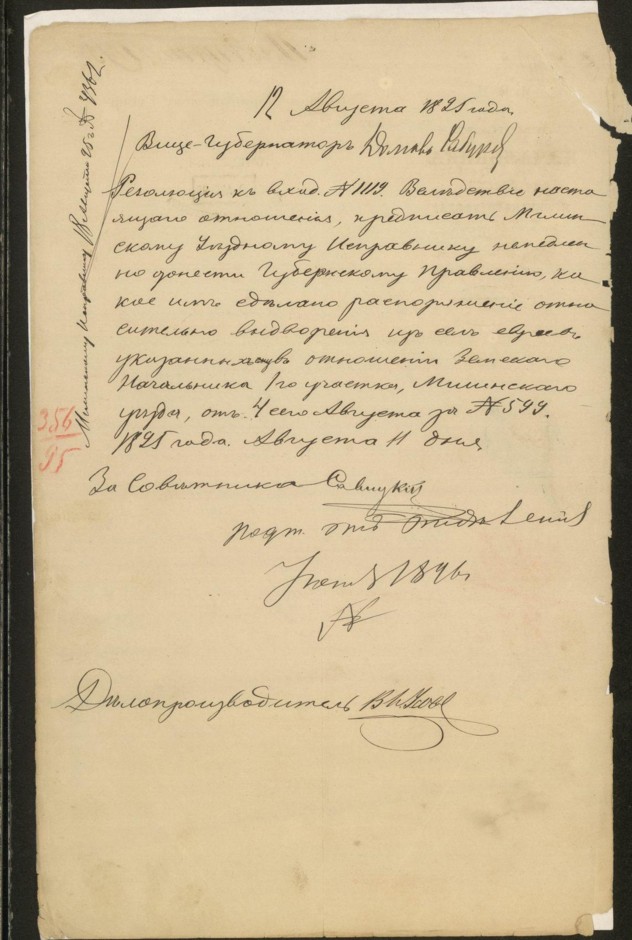 12 Августа 1895 года.
Вице-Губернаторъ
Резолюція къ вход. № 1119. Вслѣдствіе насто
ящаго отношенія, предписать Мглин-
скому Уѣздному Исправнику немедлен
но донести Губернскому Правленію, ка
кое имъ сдѣлано распоряженіе отно
сительно выдворенія изъ селъ евреевъ
указанныхъ въ отношеніи Земскаго
Начальника 1го участка, Мглинскаго
уѣзда, отъ 4 сего Августа за № 599.
1895 года. Августа 11 дня
За Совѣтника Савицкій
1896
Дѣлопроизводитель
Мглинскому Исправнику
356/95